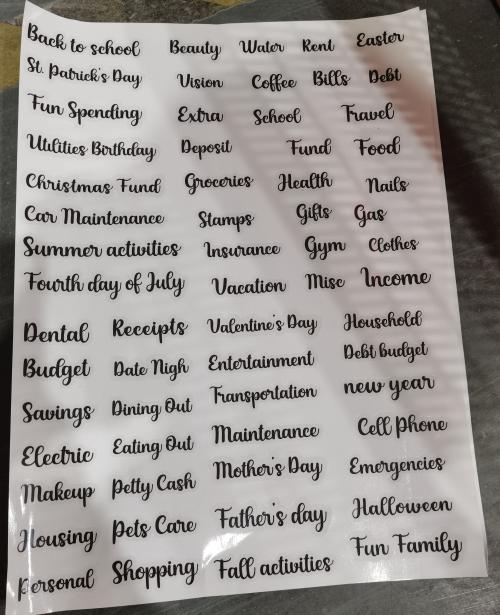 Back to school Beauty Water Rent Easter
St. Patrick's Day Vision Coffee Bills Debt
Fun Spending Extra School Travel
Utilities Birthday Deposit Fund Food
Christmas Fund Groceries Health Nails
Car Maintenance Stamps Gifts Gas
Summer activities Insurance Gym Clothes
Fourth day of July Vacation Misc Income
Dental Receipts Valentine's Day Household
Budget Date Nigh Entertainment Debt budget
Savings Dining Out Transportation new year
Electric Eating Out Maintenance Cell Phone
Makeup Petty Cash Mother's Day Emergencies
Housing Pets Care Father's day Halloween
Personal Shopping Fall activities Fun Family